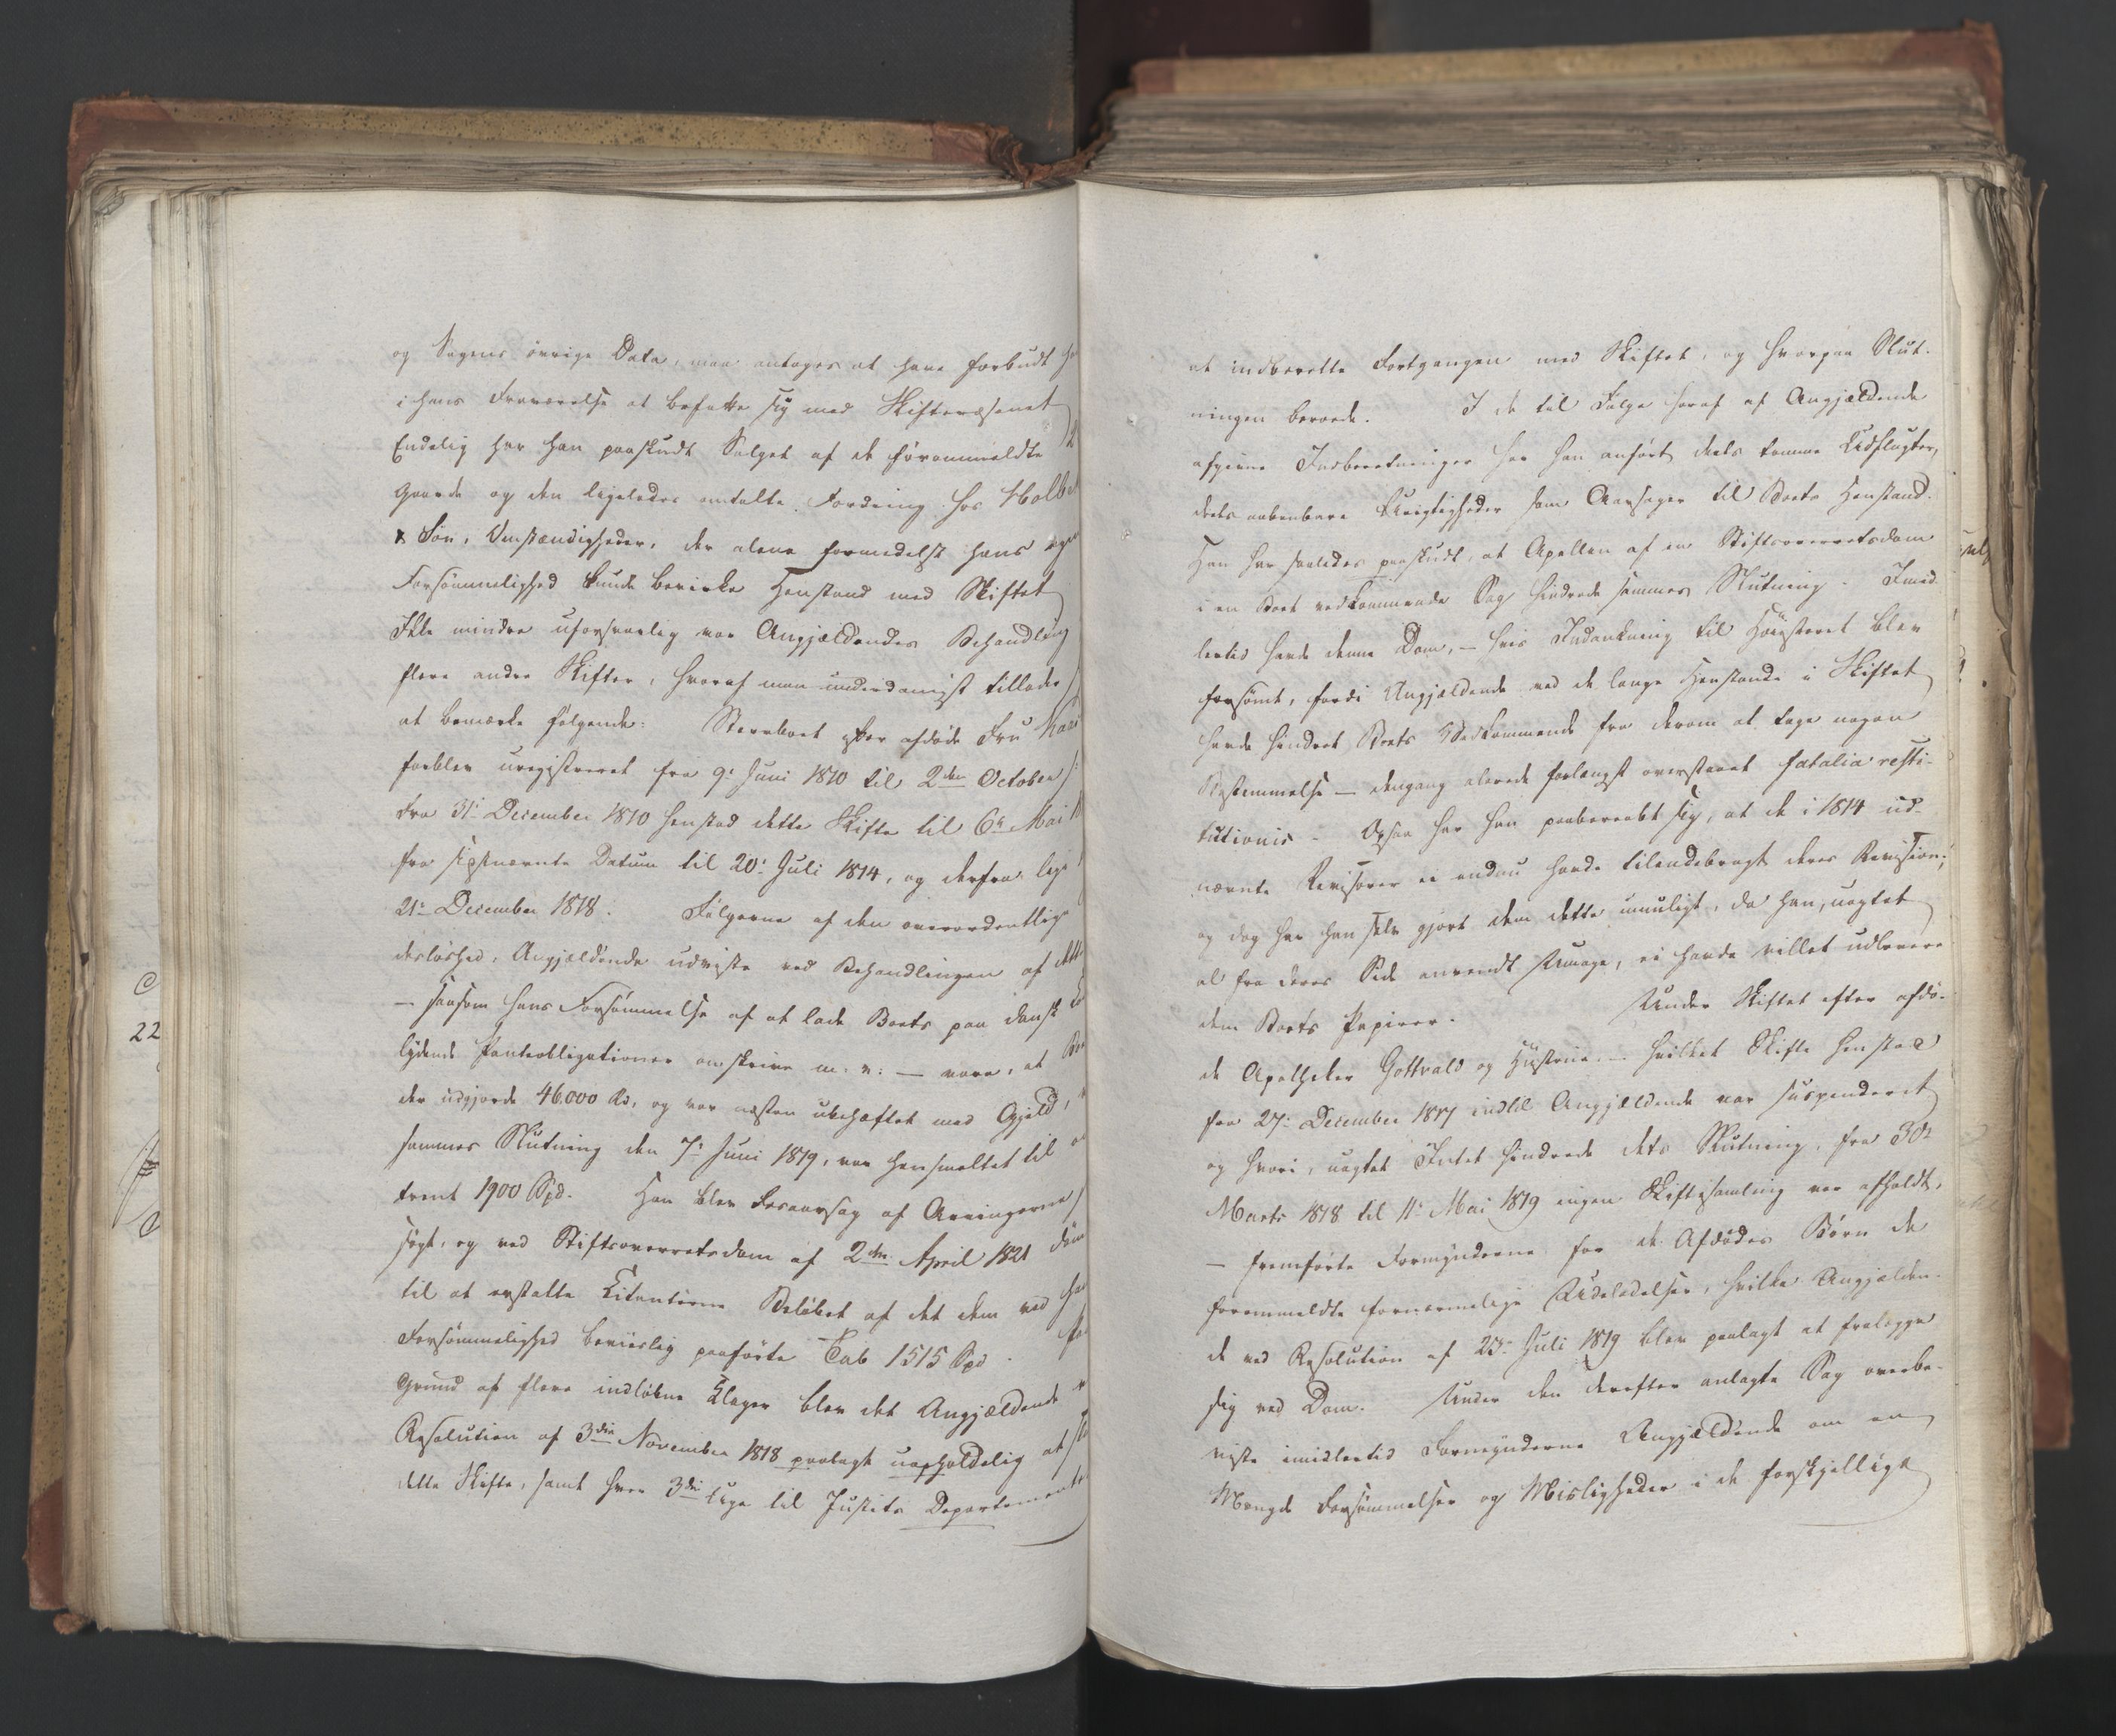 og Sagens øvrige Data, maa antages at have forbudt
i hans Fraværelse at befatte sig med Skiftevæsenet
Endelig har han paaskudt Salget af de førommeldte
Gaarde og den ligeledes omtalte Fordring hos
& Søn, Omstændigheder, der alene formedelst hans
Forsømmelighed kunde bevirke Henstand med Skiftet
Ikke mindre uforsvarlig var Angjældendes Behandling
flere andre Skifter, hvoraf man underdanigst tillader
at bemærke følgende: Stervboet efter afdøde Fru
forblev uregistreret fra 9: Juni 1810 til 2den October
Fra 31: December 1810 henstod dette Skifte til 6te Mai
fra sidstnævnte Datum til 20: Juli 1814, og derfra lige
21: December 1818. Følgerne af den overordentlige
desløshed, Angjældende udviste ved Behandlingen af
— saasom hans Forsømmelse af at lade Boets paa dansk
lydende Panteobligationer omskrive m: v: — vare, at
der udgjorde 46.000 Rd, og var næsten ubehæftet med Gjeld,
sammes Slutning den 7: Juni 1819, var hensmeltet til
trent 1900 Spd. Han blev desaarsag af Arvingerne
søgt, og ved Stiftsoverretsdom af 2den April 1821
til at erstatte Citanterne Beløbet af det dem ved
Forsømmelighed beviislig paaførte Tab 1515 Spd.
Grund af flere indløbne Klager blev det Angjældende
Resolution af 3die November 1818 paalagt uopholdelig at
dette Skifte, samt hver 3die Uge til Justits Departementet
at indberette Fortgangen med Skiftet, og hvorpaa Slut-
ningen beroede. I de til Følge heraf af Angjældende
afgivne Indberetninger har han anført deels tomme Udflugter,
deels aabenbare Urigtigheder som Aarsager til Boets Henstand.
Han har saaledes paaskudt, at Apellen af en Stiftsoverretsdom
i en Boet vedkommende Sag hindrede sammes Slutning. Imid-
lertid havde denne Dom, — hvis Indankning til Høiesteret blev
forsømt, fordi Angjældende ved de lange Henstande i Skiftet
havde hindret Boets Vedkommende fra derom at tage nogen
Bestemmelse — dengang allerede forlængst oversteget fatalia resti-
tutionis. Ogsaa har han paaberaabt sig, at de i 1814 ud-
nævnte Revisorer ei endnu havde tilendebragt deres Revision;
og dog har han selv gjort dem dette umuligt, da han, uagtet
al fra deres Side anvendt Umage, ei havde villet udlevere
dem Boets Papirer. Under Skiftet efter afdø-
de Apotheker Gottvald og Hustrue — hvilket Skifte henstod
fra 27: December 1817 indtil Angjældende var suspenderet
og hvori, uagtet Intet hindrede dets Slutning, fra 30te
Marts 1818 til 11: Mai 1819 ingen Skiftesamling var afholdt,
— fremførte Formynderne for de Afdødes Børn de
forommeldte fornærmelige Udeladelser, hvilke Angjælden-
de ved Resolution af 23: Juli 1819 blev paalagt at fralægge
sig ved Dom. Under den derefter anlagte Sag overbe-
viste imidlertid Formynderne Angjældende om en
Mængde Forsømmelser og Misligheder i de forskjellige
22